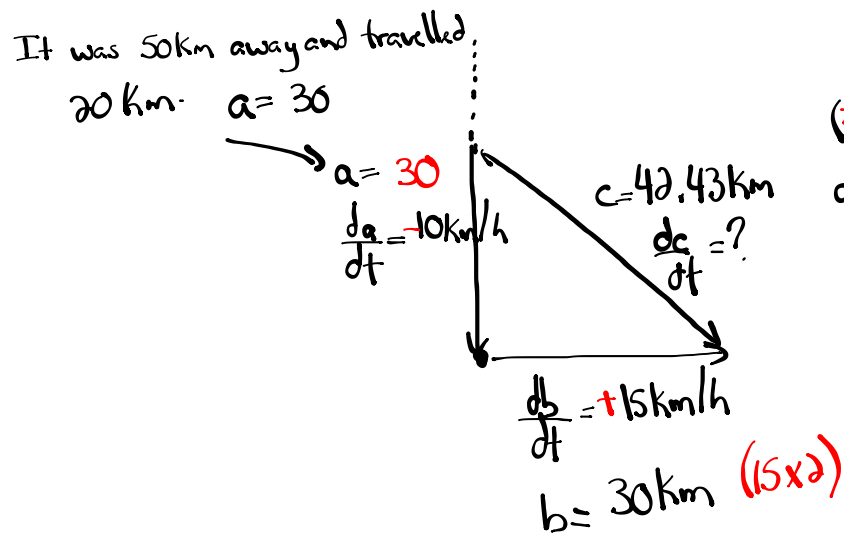 It was 50km away and travelled
20 Km. a= 30
a= 30
da/dt = -10km/h
c=42.43Km
dc/dt =?
db/dt = +15km/h
b= 30km (15×2)